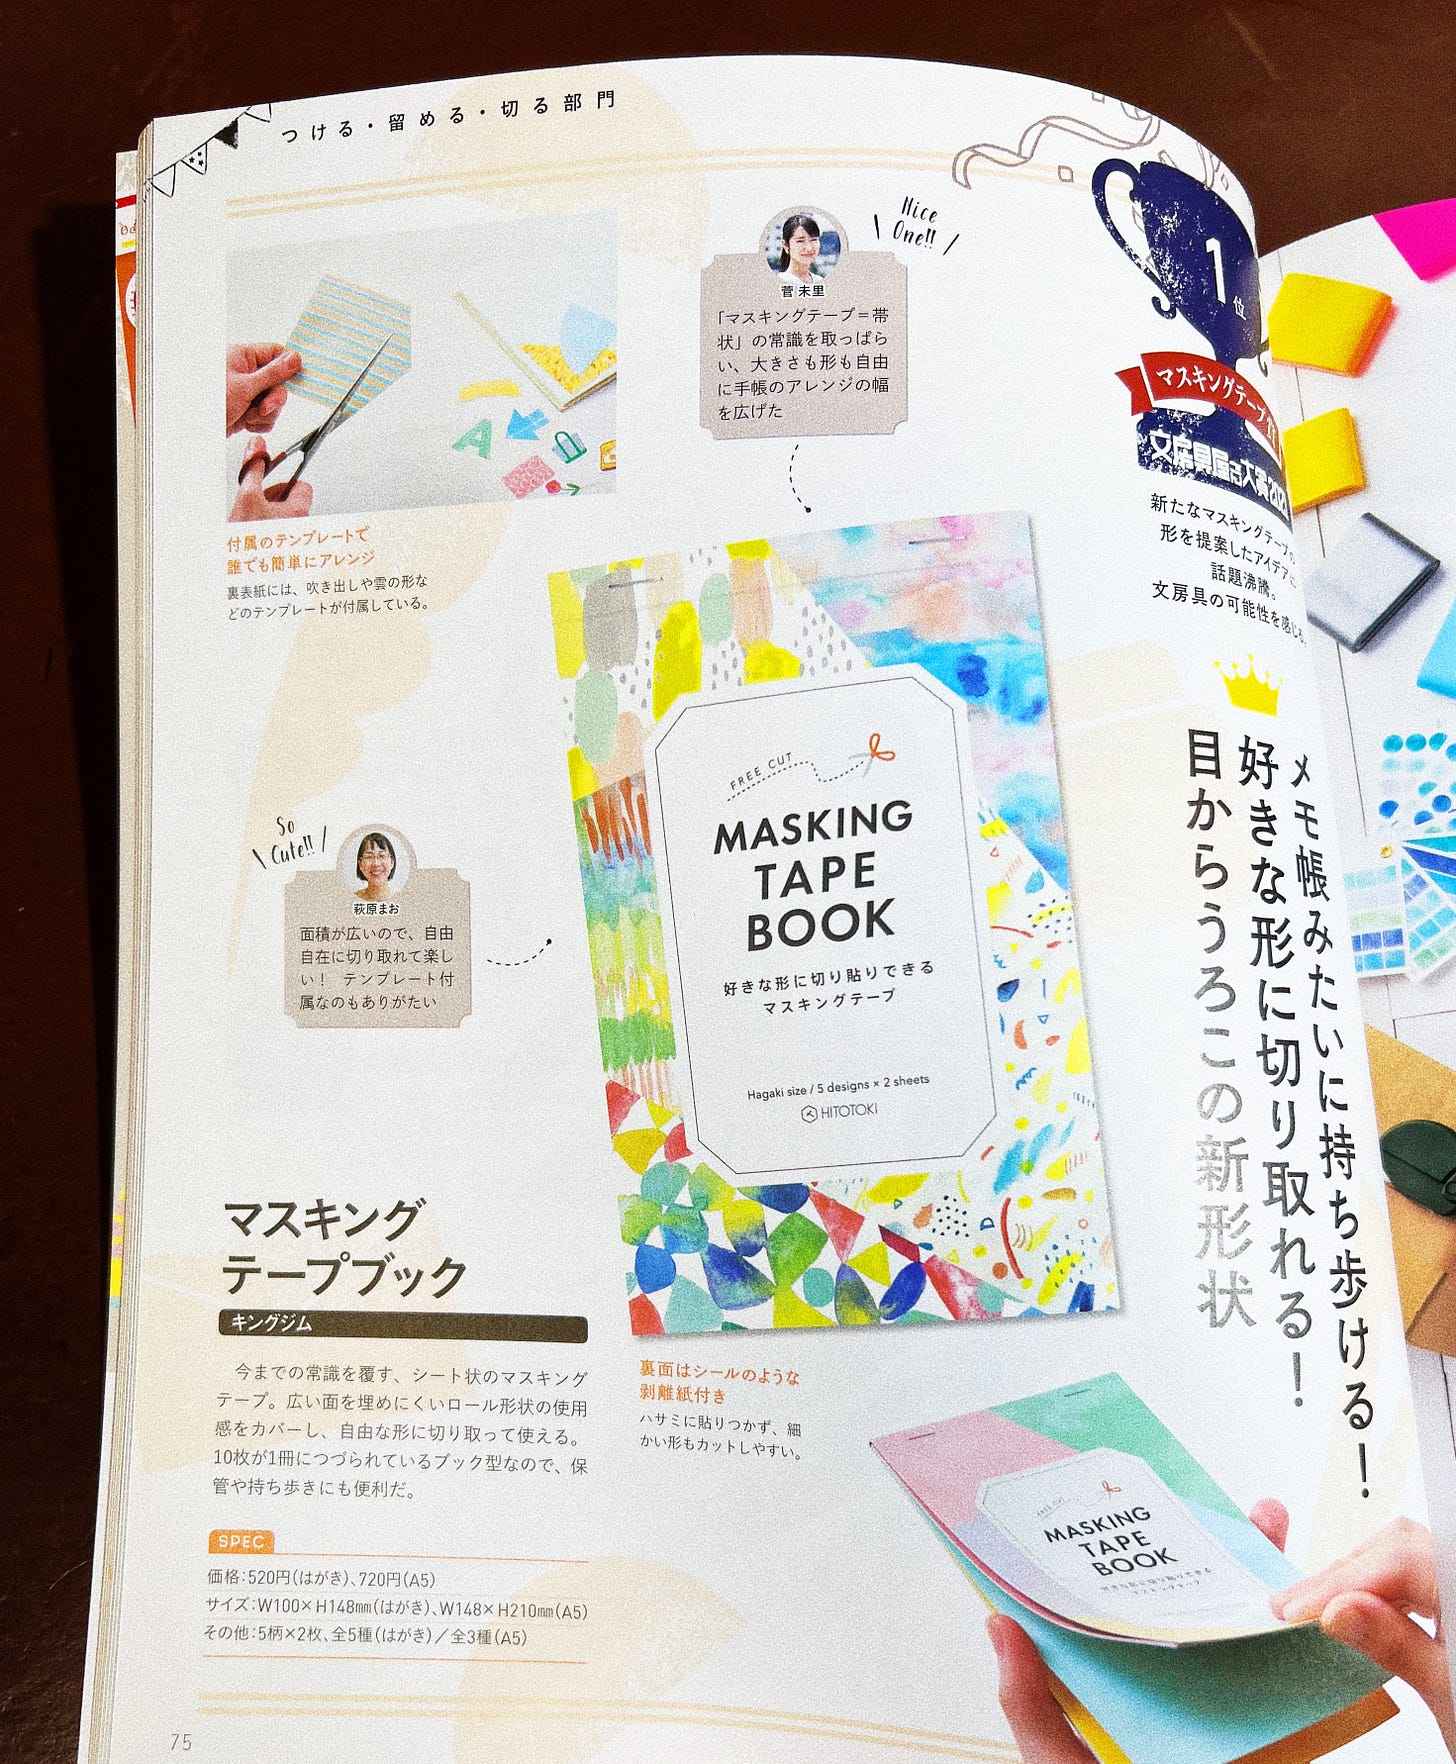 つける・留める・切る部門
1位
マスキングテープ
文房具屋さん大賞
新たなマスキングテープの
形を提案したアイデアに
話題沸騰。
文房具の可能性を感じる
メモ帳みたいに持ち歩ける!
好きな形に切り取れる!
目からうろこの新形状
Nice
One!!
菅 未里
「マスキングテープ=帯
状」の常識を取っぱら
い、大きさも形も自由
に手帳のアレンジの幅
を広げた
付属のテンプレートで
誰でも簡単にアレンジ
裏表紙には、吹き出しや雲の形な
どのテンプレートが付属している。
FREE CUT
MASKING
TAPE
BOOK
好きな形に切り貼りできる
マスキングテープ
Hagaki size / 5 designs × 2 sheets
HITOTOKI
So
Cute!!
萩原まお
面積が広いので、自由
自在に切り取れて楽し
い! テンプレート付
属なのもありがたい
マスキング
テープブック
キングジム
今までの常識を覆す、シート状のマスキング
テープ。広い面を埋めにくいロール形状の使用
感をカバーし、自由な形に切り取って使える。
10枚が1冊につづられているブック型なので、保
管や持ち歩きにも便利だ。
裏面はシールのような
剥離紙付き
ハサミに貼りつかず、細
かい形もカットしやすい。
SPEC
価格:520円(はがき)、720円(A5)
サイズ:W100×H148㎜(はがき)、W148×H210㎜(A5)
その他:5柄×2枚、全5種(はがき)/全3種(A5)
FREE CUT
MASKING
TAPE
BOOK
好きな形に切り貼りできる
マスキングテープ
75